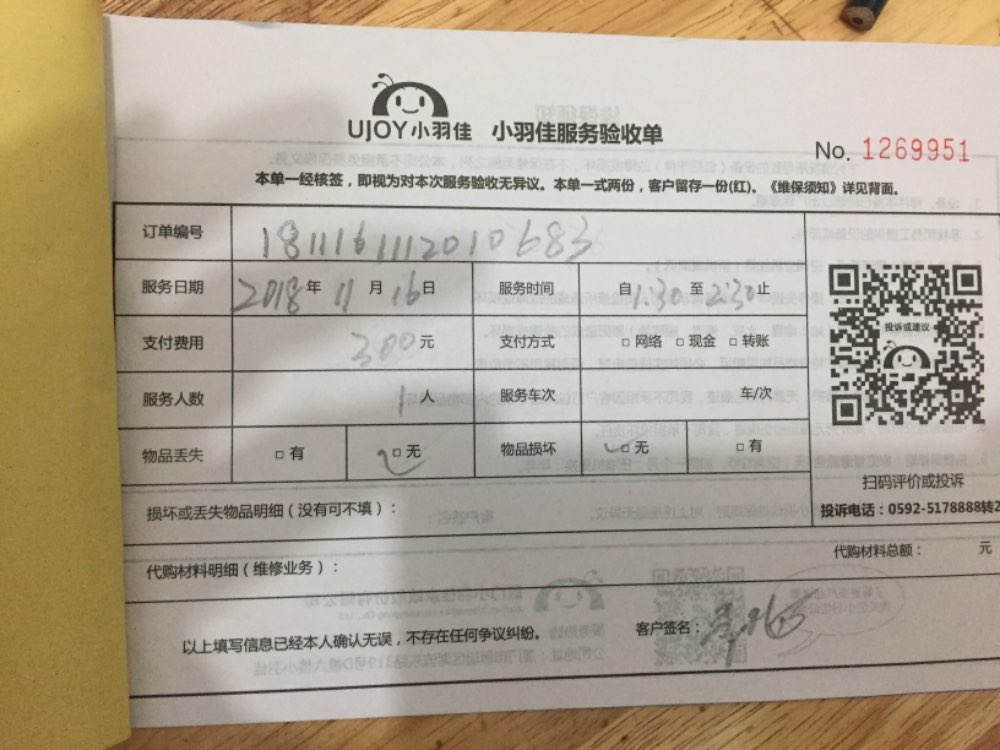 UJOY小羽佳 小羽佳服务验收单
No. 1269951
本单一经核签，即视为对本次服务验收无异议。本单一式两份，客户留存一份(红)。《维保须知》详见背面。
订单编号 18111611112010683
服务日期 2018年11月16日 服务时间 自1:30至2:30止
支付费用 300元 支付方式 □网络 □现金 □转账
投诉或建议
服务人数 1人 服务车次 车/次
物品丢失 □有 □无 物品损坏 □无 □有
扫码评价或投诉
损坏或丢失物品明细（没有可不填）：
投诉电话：0592-5178888转2
代购材料明细（维修业务）： 代购材料总额： 元
以上填写信息已经本人确认无误，不存在任何争议纠纷。 客户签名：